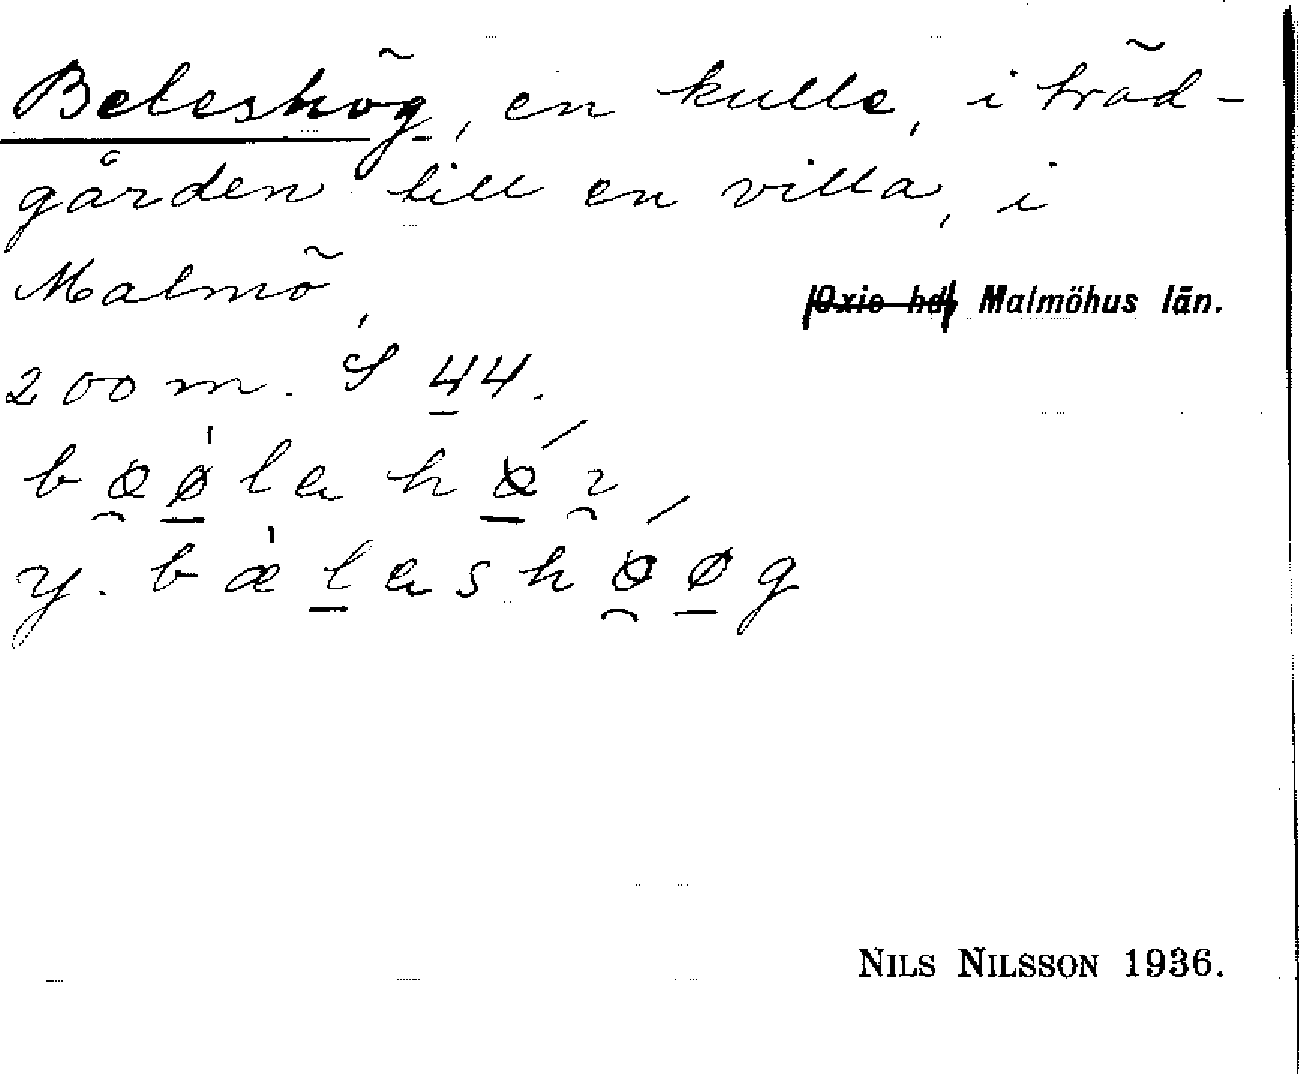 Beleshög, en kulle, i träd-
gården till en villa, i
Malmö,
Oxie hd, Malmöhus län.
200 m. S 44.
y.
NILS NILSSON 1936.